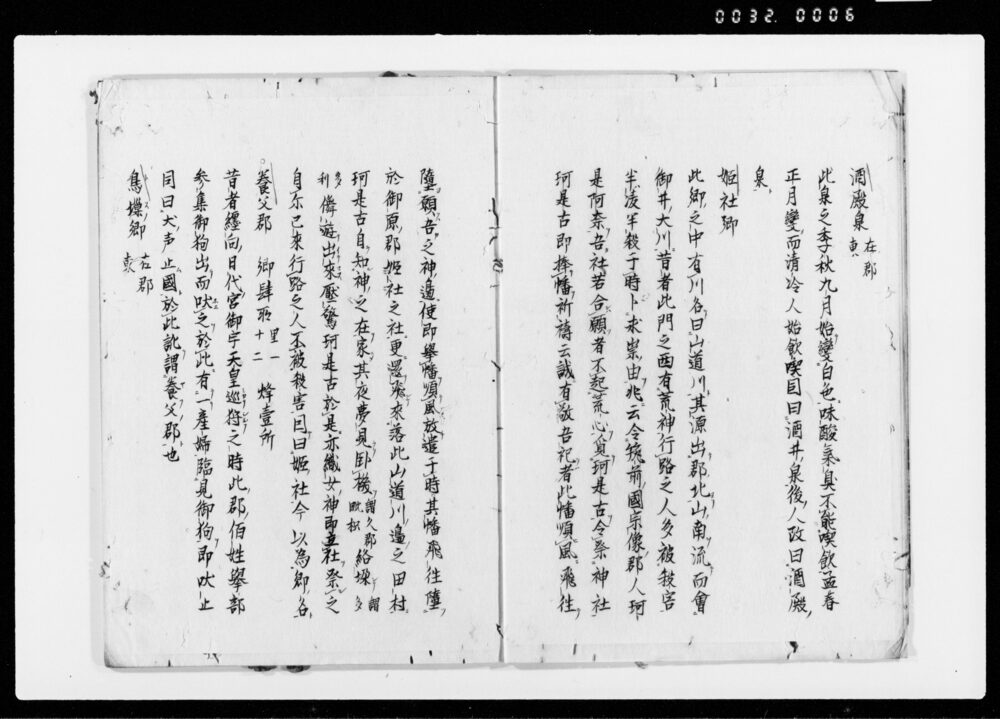 0032.0006
酒殿泉 在郡東
此泉之季秋九月始變白色味酸氣臭不能喫飲孟春
正月變而清冷人始飲喫因曰酒井泉後人改曰酒殿
泉
姫社郷
此郷之中有川名曰山道川其源出郡北山南流而會
御井大川昔者此門之西有荒神行路之人多被殺害
半凌半殺于時卜求祟由兆云令筑前國宗像郡人珂
是阿奈吾社若合願者不起荒心負珂是古令祭神社
珂是古即捧幡祈禱云誠有欲吾祀者此幡順風飛往
墮願吾之神邊使即擧幡順風放遣于時其幡飛往墮
於御原郡姫社之社更還飛來落此山道川邊之田村
珂是古自知神之在家其夜夢見卧機謂久都毗枳絡垛謂多
多利儛遊出來壓驚珂是古於是亦織女神即立社祭之
自尓已來行路之人不被殺害因曰姫社今以為郷名
養父郡 郷肆所 里一十二 烽壹所
昔者纒向日代宮御宇天皇巡狩之時此郡伯姓擧部
參集御狗出而吠之於此有一產婦臨見御狗即吠止
因曰犬声止國於此訛謂養父郡也
鳥樔郷 在郡東